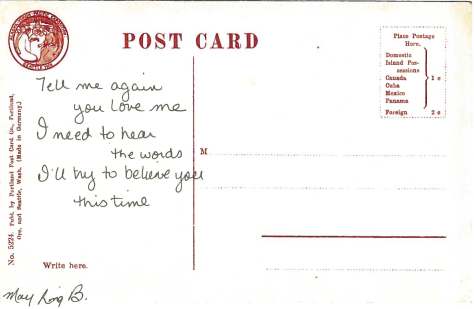 POST CARD
Place Postage
Here.
Domestic
Island Pos-
sessions
Canada
Cuba
Mexico
Panama
1 c
Foreign 2 c
Tell me again
you love me
I need to hear
the words
I'll try to believe you
this time
M
No. 5224. Publ. by Portland Post Card Co., Portland,
Ore. and Seattle, Wash. (Made in Germany.)
Write here.